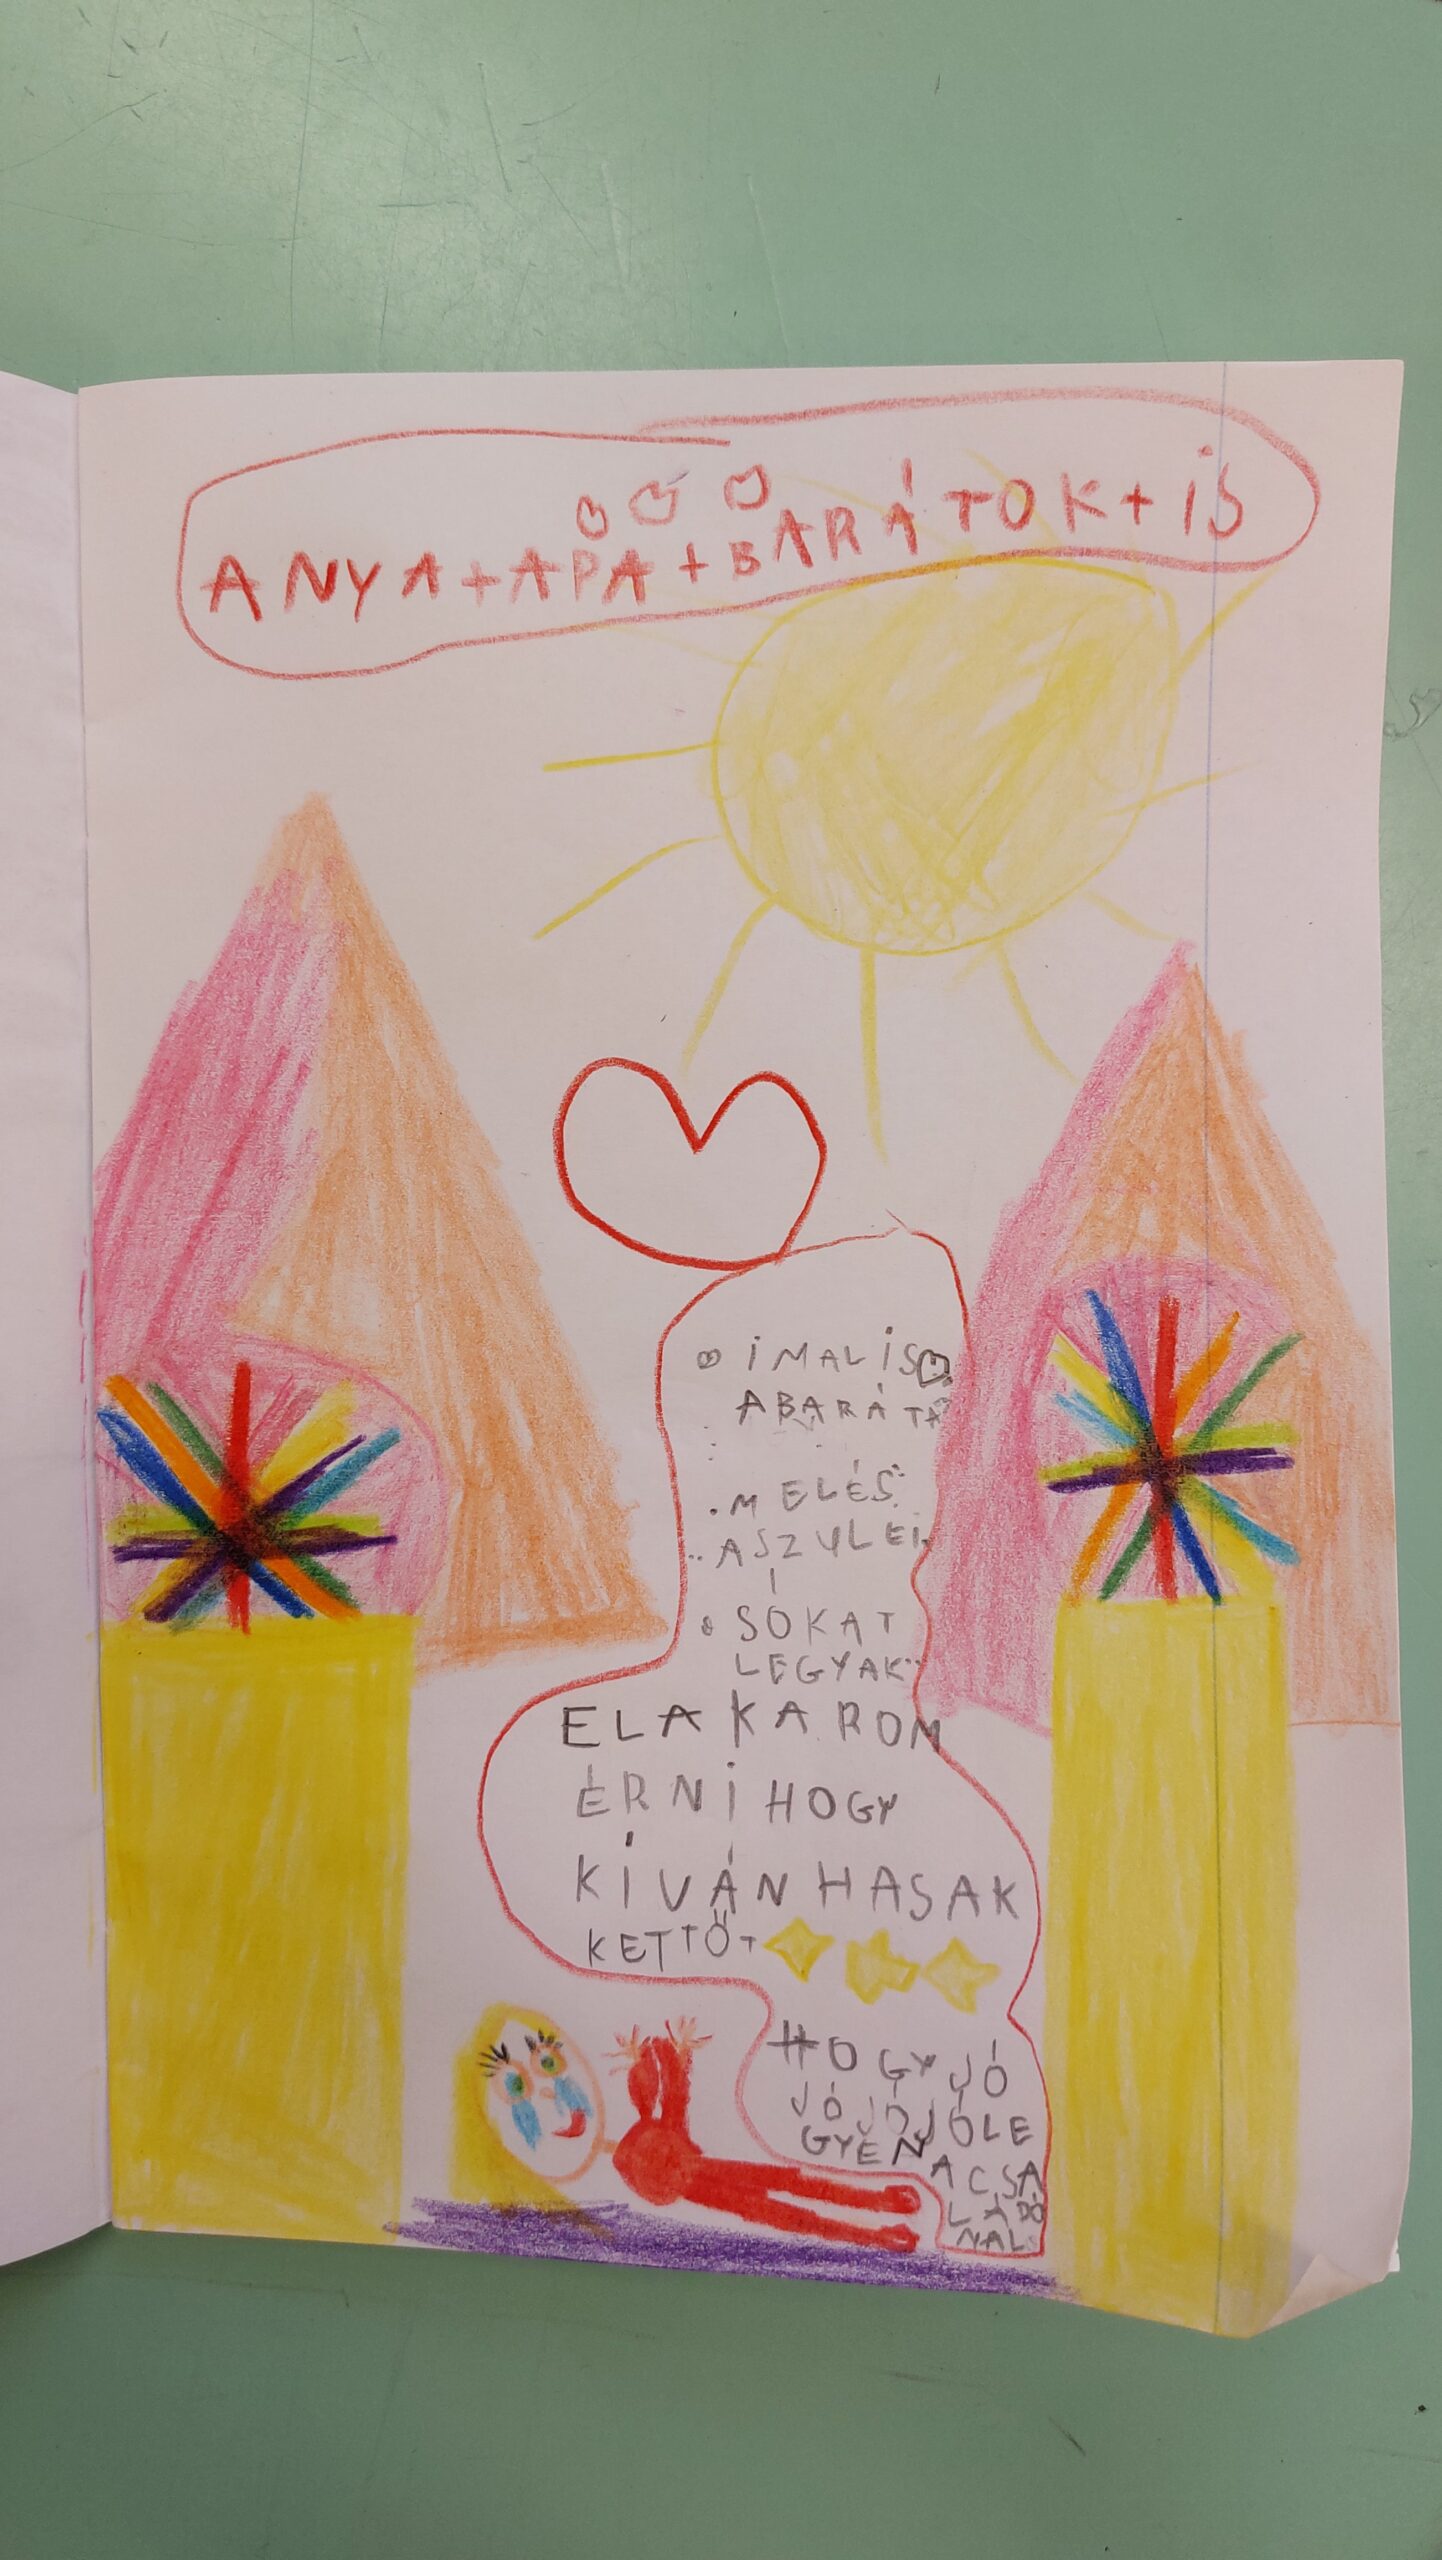 ANYA+APA+BARÁTOK+IS
IMALIS
ABARÁTA
MELÉS
ASZULEI
SOKAT
LEGYAK
ELAKAROM
ÉRNI HOGY
KÍVÁNHASAK
KETTŐT
HOGY JÓ
JÓ JÓ JÓLE
GYEN
ACSA
LÁDO
NAL